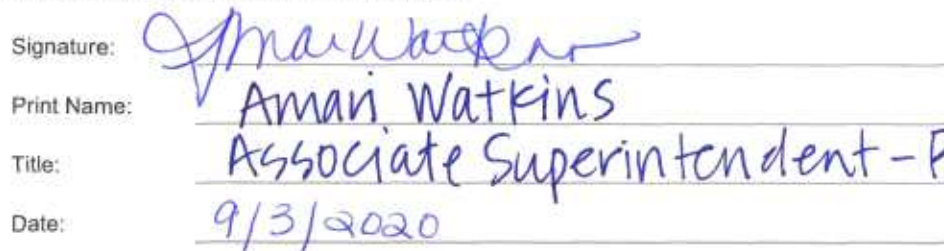 Signature: Amari Watkins
Print Name: Amari Watkins
Title: Associate Superintendent-
Date: 9/3/2020